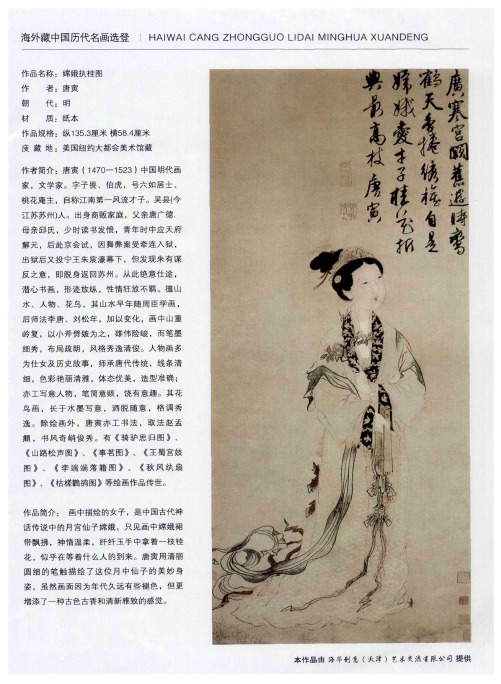 海外藏中国历代名画选登 | HAIWAI CANG ZHONGGUO LIDAI MINGHUA XUANDENG
作品名称：嫦娥执桂图
作　　者：唐寅
朝　　代：明
材　　质：纸本
作品规格：纵135.3厘米 横58.4厘米
庋 藏 地：美国纽约大都会美术馆藏
作者简介：唐寅（1470—1523）中国明代画
家，文学家。字子畏、伯虎，号六如居士、
桃花庵主，自称江南第一风流才子。吴县(今
江苏苏州)人。出身商贩家庭，父亲唐广德，
母亲邱氏，少时读书发愤，青年时中应天府
解元，后赴京会试，因舞弊案受牵连入狱，
出狱后又投宁王朱宸濠幕下，但发现朱有谋
反之意，即脱身返回苏州。从此绝意仕途，
潜心书画，形迹放纵，性情狂放不羁。擅山
水、人物、花鸟，其山水早年随周臣学画，
后师法李唐、刘松年，加以变化，画中山重
岭复，以小斧劈皴为之，雄伟险峻，而笔墨
细秀，布局疏朗，风格秀逸清俊。人物画多
为仕女及历史故事，师承唐代传统，线条清
细，色彩艳丽清雅，体态优美，造型准确；
亦工写意人物，笔简意赅，饶有意趣。其花
鸟画，长于水墨写意，洒脱随意，格调秀
逸。除绘画外，唐寅亦工书法，取法赵孟
頫，书风奇峭俊秀。有《骑驴思归图》、
《山路松声图》、《事茗图》、《王蜀宫妓
图》、《李端端落籍图》、《秋风纨扇
图》、《枯槎鸜鹆图》等绘画作品传世。
作品简介：　画中描绘的女子，是中国古代神
话传说中的月宫仙子嫦娥，只见画中嫦娥裙
带飘拂，神情温柔，纤纤玉手中拿着一枝桂
花，似乎在等着什么人的到来。唐寅用清丽
圆细的笔触描绘了这位月中仙子的美妙身
姿，虽然画面因为年代久远有些褪色，但更
增添了一种古色古香和清新雅致的感觉。
廣寒宮闕舊遊時鸞
鶴天香捲繡旗自是
嫦娥愛才子桂花折
與最高枝 唐寅
本作品由 海华创意（天津）艺术交流有限公司 提供